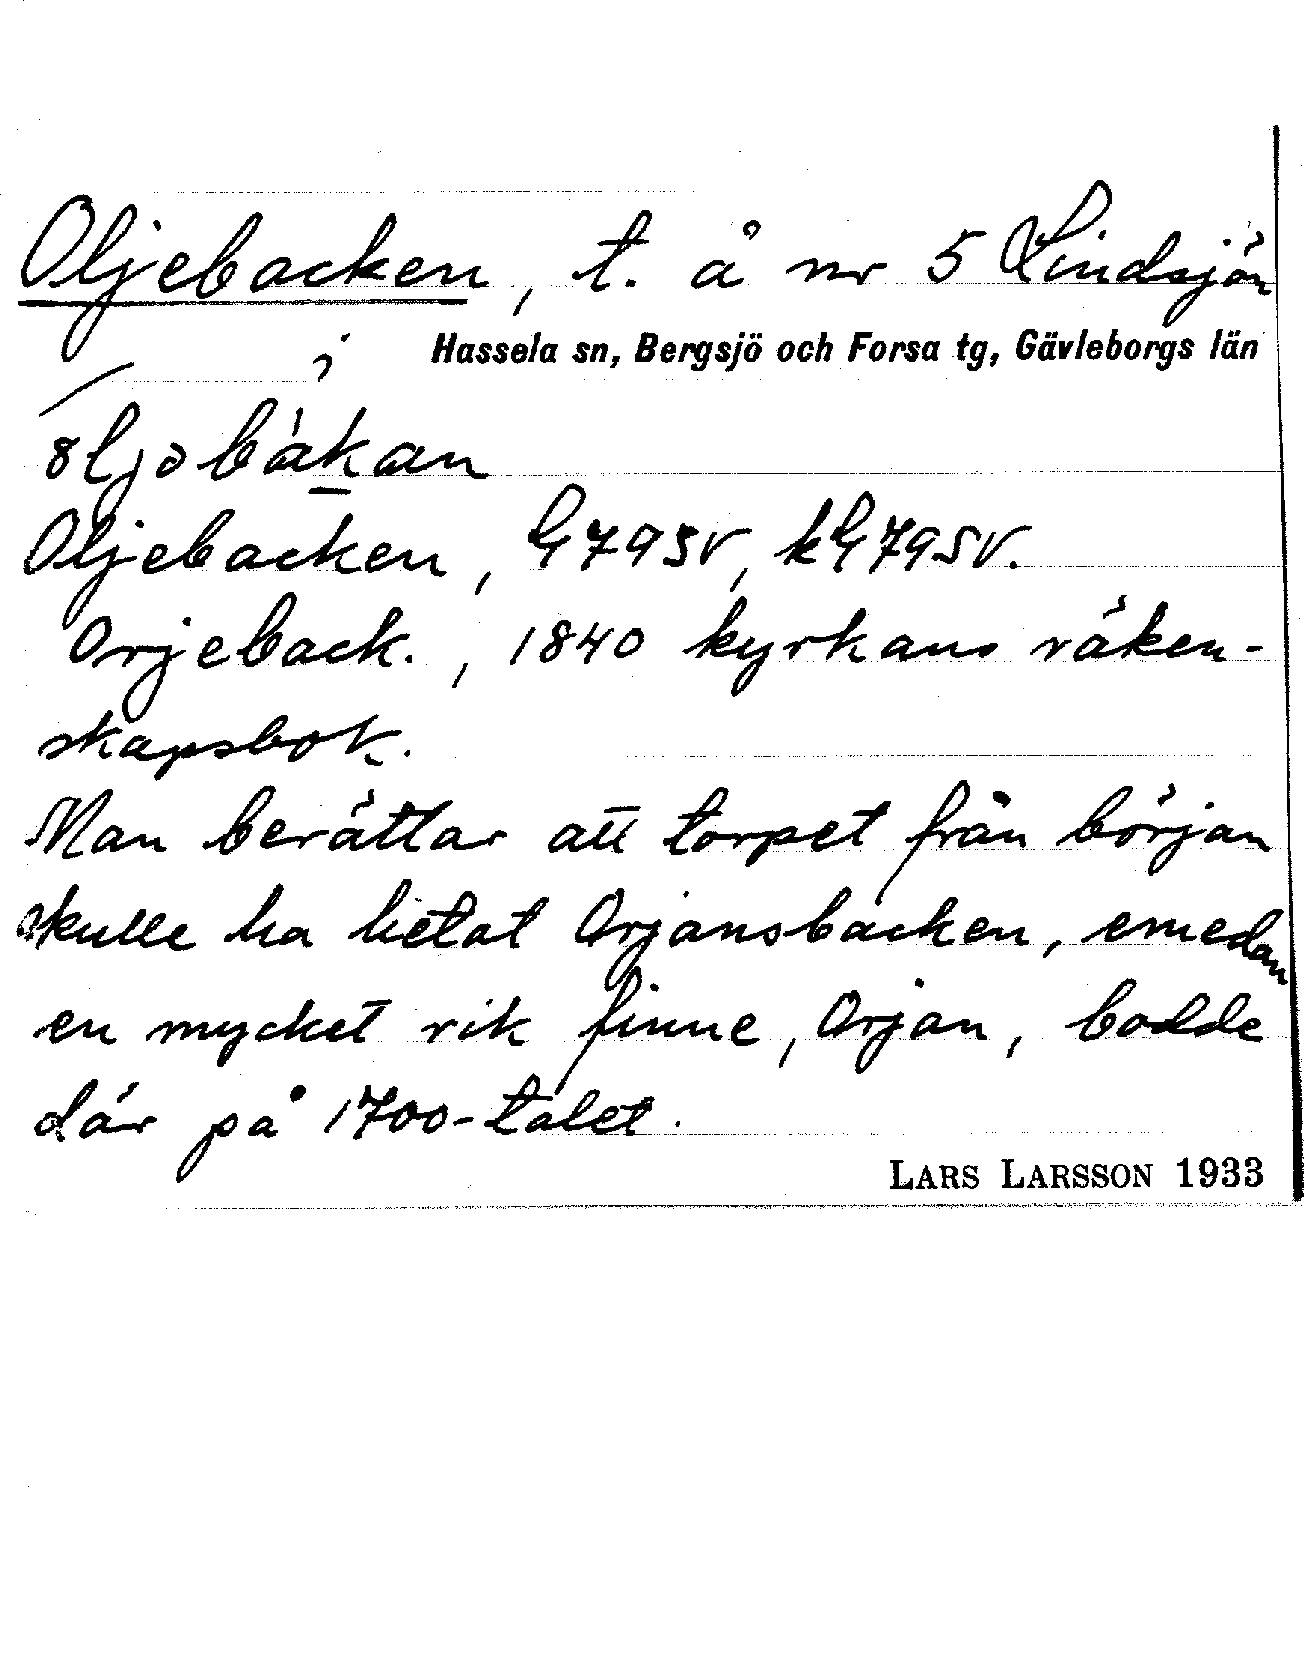 Oljebacken, t. å nr 5 Lindsjön
i Hassela sn, Bergsjö och Forsa tg, Gävleborgs län
Oljebacken, G79SV, kG79SV.
Orjeback., 1840 kyrkans räken-
skapsbok.
Man berättar att torpet från början
skulle ha hetat Orjansbacken, emedan
en mycket rik finne, Orjan, bodde
där på 1700-talet.
LARS LARSSON 1933